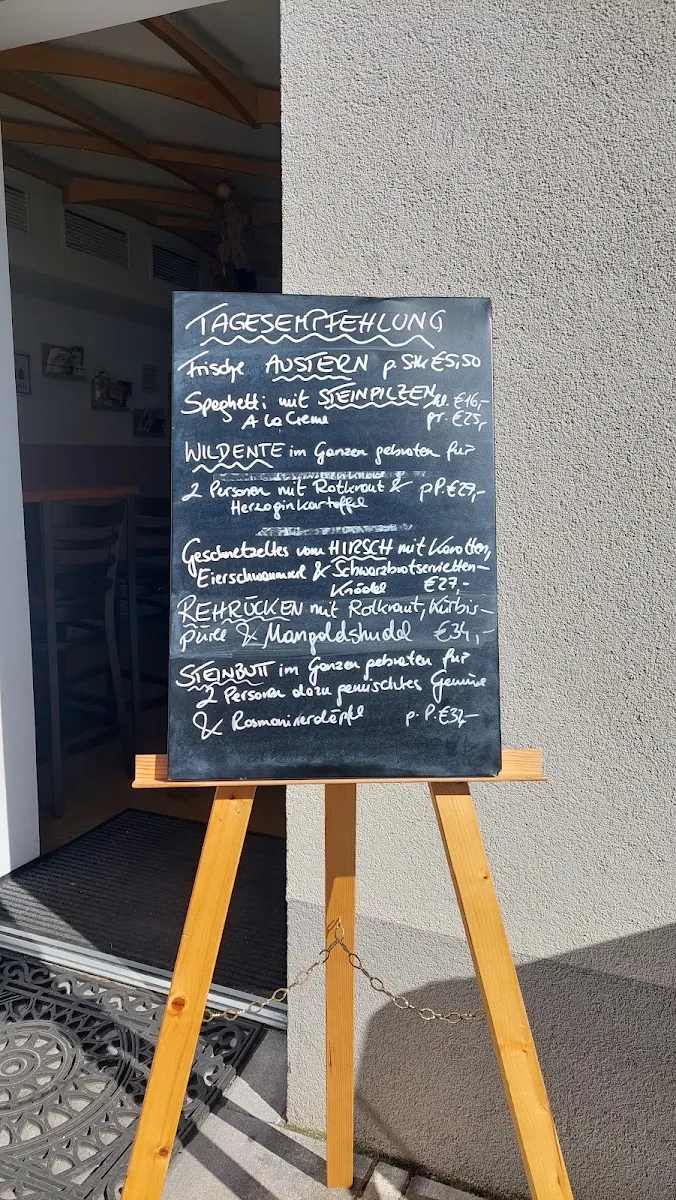 TAGESEMPFEHLUNG
Frische AUSTERN p. Stk €5,50
Spaghetti mit STEINPILZEN kl. €16,-
A la Creme gr. €25,-
WILDENTE im Ganzen gebraten für
2 Personen mit Rotkraut & pP. €29,-
Herzoginkartoffel
Geschnetzeltes vom HIRSCH mit Karotten,
Eierschwammerl & Schwarzbrotservietten-
Knödel €27,-
REHRÜCKEN mit Rotkraut, Kürbis-
püree & Mangoldstrudel €34,-
STEINBUTT im Ganzen gebraten für
2 Personen dazu gemischtes Gemüse
& Rosmarinerdäpfel p. P. €37,-